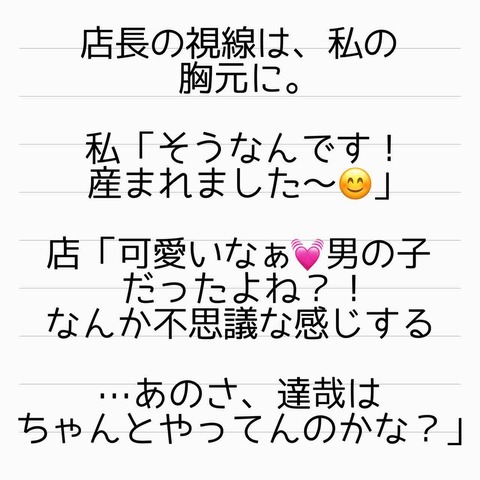 店長の視線は、私の
胸元に。
私「そうなんです！
産まれました〜😊」
店「可愛いなぁ💓男の子
だったよね？！
なんか不思議な感じする
…あのさ、達哉は
ちゃんとやってんのかな？」